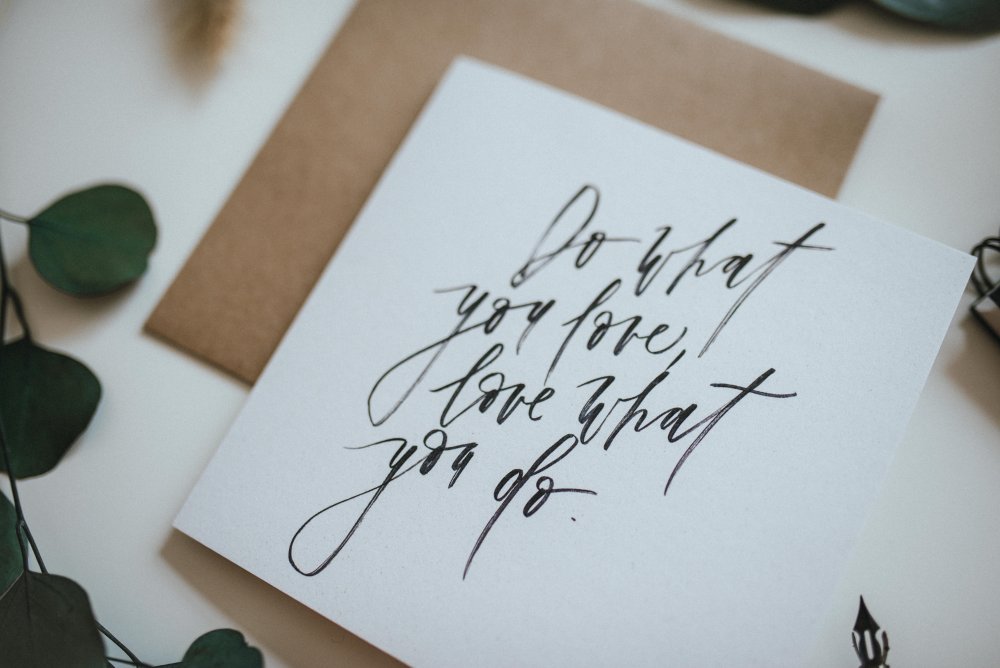 Do what
you love,
love what
you do.